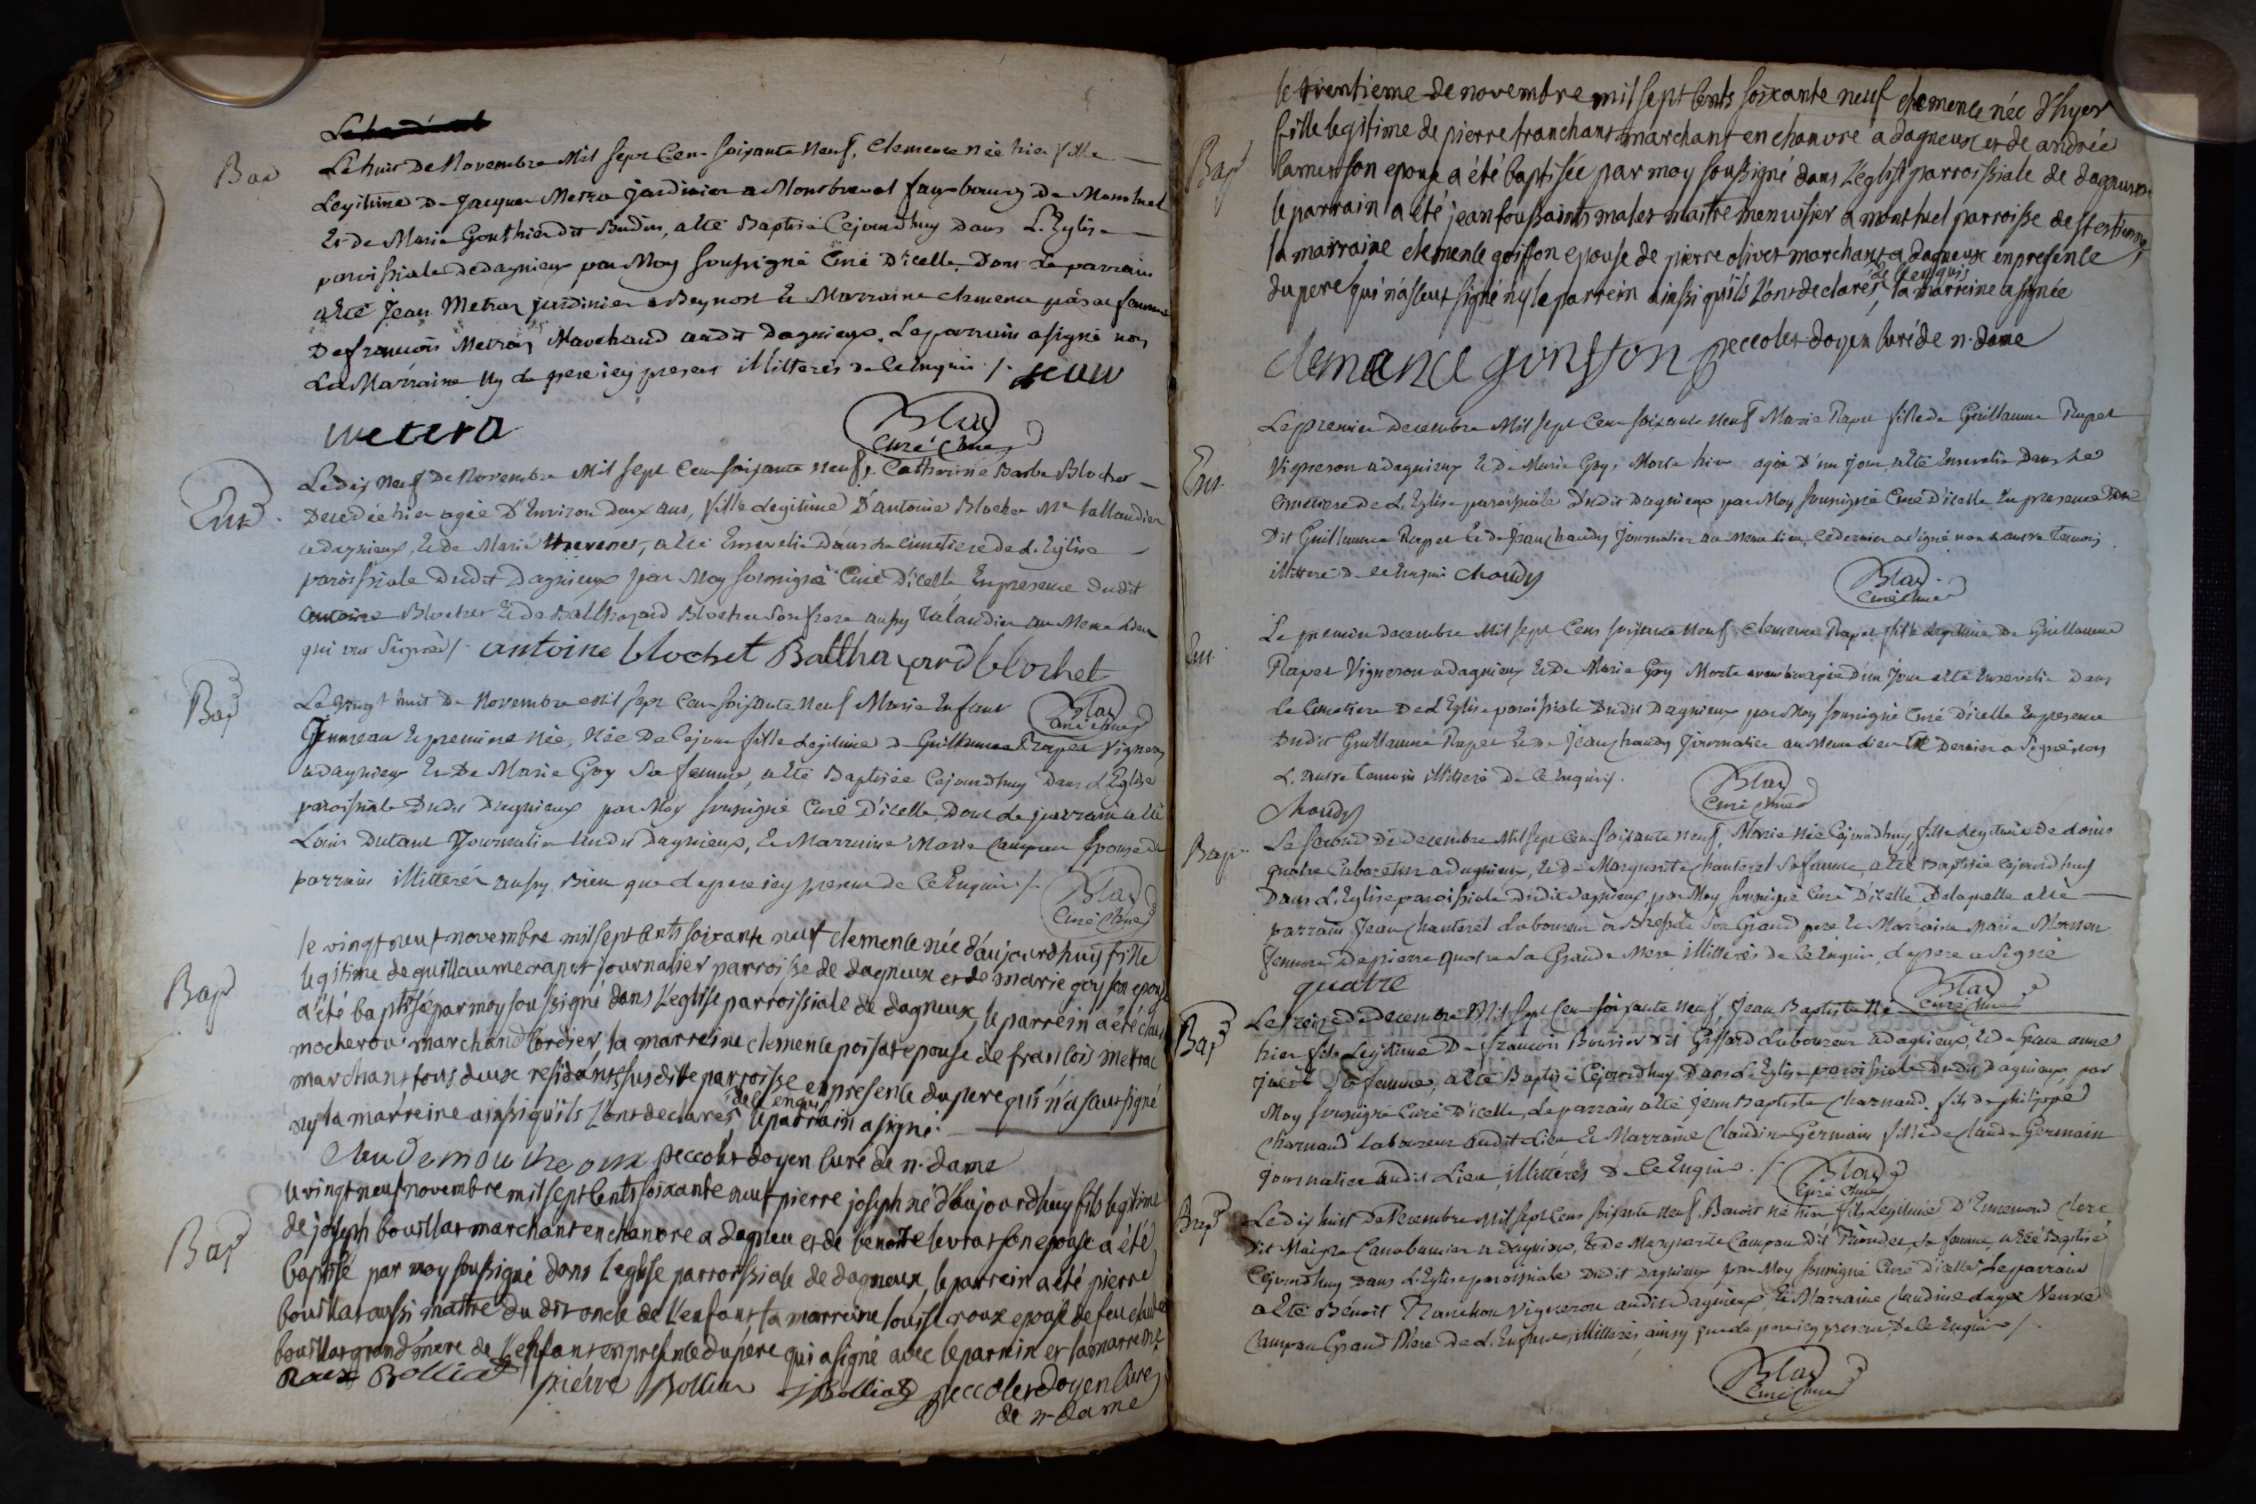 Bap
Le huit de Novembre Mil sept Cens soixante Neuf, Clemence née hier fille
Legitime de Jacques Metra jardinier a Montbreval fauxbourg de Montluel
Et de Marie Gonthier dit Budin, a été Baptisée Cejourdhuy dans L'Eglise
paroissiale de dagnieux par Moy soussigné Curé D'icelle Dont Le parrain
a été Jean Metra jardinier a Beynost Et Marraine Clemence femme
De françois Metra Marchand audit Dagnieux. Le parrain a signé non
La Marraine Ny Le pere icy present illitterés de ce Enquis /. jean
metera
Blad
Curé
Ent
Le dix Neuf De Novembre Mil sept Cens soixante Neuf, Catherine Barbe Blochet
Decedée hier agée D'Environ Deux ans, fille Legitime D'antoine Blochet Me tallandier
a dagnieux, Et de Marie thevenet, a été Ensevelie Dans Le Cimetiere de L'Eglise
paroissiale Dudit Dagnieux par Moy soussigné Curé D'icelle En presence Dudit
antoine Blochet Et de Balthazard Blochet son frere aussy talandier au Meme Lieu
qui ont Signé /. antoine blochet Balthazard blochet
Blad
Curé
Bap
Le Vingt huit De Novembre Mil sept Cens soixante Neuf Marie Enfant
Jumeau Et premiere née, Née De Cejour fille Legitime de Guillaume Rapet Vigneron
a dagnieux Et De Marie Goy Sa femme, a été Baptisée Cejourdhuy Dans L'Eglise
paroissiale Dudit Dagnieux par Moy soussigné Curé D'icelle Dont Le parrain a été
Louis Dutant Journalier Audit Dagnieux, Et Marraine Marie Campan Epouse du
parrain illitterés aussy Bien que Le pere icy present de Ce Enquis /.
Blad
Curé
Bap
le vingt neuf novembre mil sept cents soixante neuf clemence née d'aujourdhuy fille
legitime de guillaume rapet journalier parroisse de dagneux et de marie goy son epouse
a été baptisée par moy soussigné dans l'eglise parroissiale de dagneux, le parrein a été
marchand cordier la marreine clemence poisat epouse de francois metrac
marchant tous deux residants susdite parroisse en presence du pere qui n'a sceut signé
ny la marreine ainsi qu'ils l'ont declarés de ce enquis le parrain a signé.
peccolet doyen curé de n. dame
Bap
le vingt neuf novembre mil sept cents soixante neuf pierre joseph né d'aujourdhuy fils legitime
de joseph bouillat marchant en chanvre a dagneu et de benoite levrat son epouse a été
baptisé par moy soussigné dans l'eglise parroissiale de dagneux, le parrein a été pierre
bouillat aussi maitre du dit oncle de l'enfant la marreine louise roux epouse de feu
bouillat grand mere de l'enfant en presence du pere qui a signé avec le parrein et la marreine.
Roux Bolliat pierre Bolliat jBolliat peccolet doyen curé
de n. dame
Bap
le trentieme de novembre mil sept cents soixante neuf clemence née d'hyer
fille legitime de pierre franchant marchant en chanvre a dagneux et de andrée
son epouse a été baptisée par moy soussigné dans l'eglise parroissiale de dagneux
le parrain a été jean toussaints malet maitre menuisier a montluel parroisse de st estienne,
la marraine clemence goiffon epouse de pierre olivet marchant a dagneux en presence
du pere qui n'a sceut signé ny le parrein ainssi qu'ils l'ont declarés de ce enquis, la marreine a signée
clemance gonffon peccolet doyen curé de n. dame
Ent.
Le premier decembre Mil sept Cens soixante Neuf Marie Rapet fille de Guillaume Rapet
Vigneron a dagnieux Et de Marie Goy, Morte hier agée D'un jour, a été Ensevelie Dans Le
Cimetiere de L'Eglise paroissiale Dudit Dagnieux par Moy soussigné Curé D'icelle En presence Du
Dit Guillaume Rapet Et de Jean Chaudy Journalier au Meme Lieu, Ce dernier a signé non L'autre temoin
illitteré de ce Enquis Choudy
Blad
Curé
Ent.
Le premier decembre Mil sept Cens soixante Neuf Clemence Rapet fille Legitime De Guillaume
Rapet Vigneron a dagnieux Et De Marie Goy Morte agée d'un Jour a été Ensevelie Dans
Le Cimetiere De L'Eglise paroissiale Dudit Dagnieux par Moy soussigné Curé D'icelle En presence
Dudit Guillaume Rapet Et de Jean Chaudy Journalier au Meme Lieu Ce Dernier a Signé non
L'autre temoin illitteré De Ce Enquis /.
Choudy
Blad
Curé
Bap
Le second De decembre Mil sept Cens soixante neuf, Marie Née Cejourdhuy fille Legitime De Louis
quatre Cabaretier a dagnieux, Et de Marguerite Chanteret Sa femme, a été Baptisée Cejourdhuy
Dans L'Eglise paroissiale dudit Dagnieux, par Moy soussigné Curé D'icelle, De laquelle a été
parrain Jean Chanteret Laboureur a Bressole Son Grand pere Et Marraine Marie
femme De pierre quatre Sa Grande Mere illitterés de Ce Enquis, Le pere a Signé
quatre
Blad
Curé
Bap
Le treize de decembre Mil sept Cens soixante Neuf, Jean Baptiste Né
hier fils Legitime De françois Bouvier dit Giffard Laboureur a dagnieux, Et de anne
Sa femme, a été Baptisé Cejourdhuy Dans L'Eglise paroissiale Dudit Dagnieux, par
Moy soussigné Curé D'icelle, Le parrain a été Jean Baptiste Charnaud fils De philippe
Charnaud Laboureur audit Lieu Et Marraine Claudine Germain fille de Claude Germain
journalier audit Lieu, illitterés De Ce Enquis . /.
Blad
Curé
Bap
Le dix huit De Decembre Mil sept Cens soixante Neuf Benoit né hier fils Legitime D'Ennemond Clerc
dit a dagnieux, Et de Marguerite Campan dit sa femme, a été Baptisé
Cejourdhuy Dans L'Eglise paroissiale Dudit Dagnieux par Moy soussigné Curé D'icelle, Le parrain
a été Benoit Planchon Vigneron audit Dagnieux, Et Marraine Claudine Veuve
Campan Grand Mere De L'Enfant, illitterés ainsy que Le pere icy present, De Ce Enquis /.
Blad
Curé